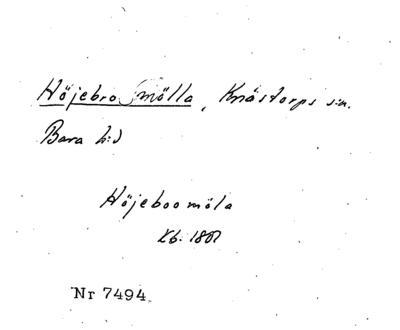 Höjebro mölla, Knästorps sn.
Bara hd
Höjeboomöla
Kb. 1801
Nr 7494.